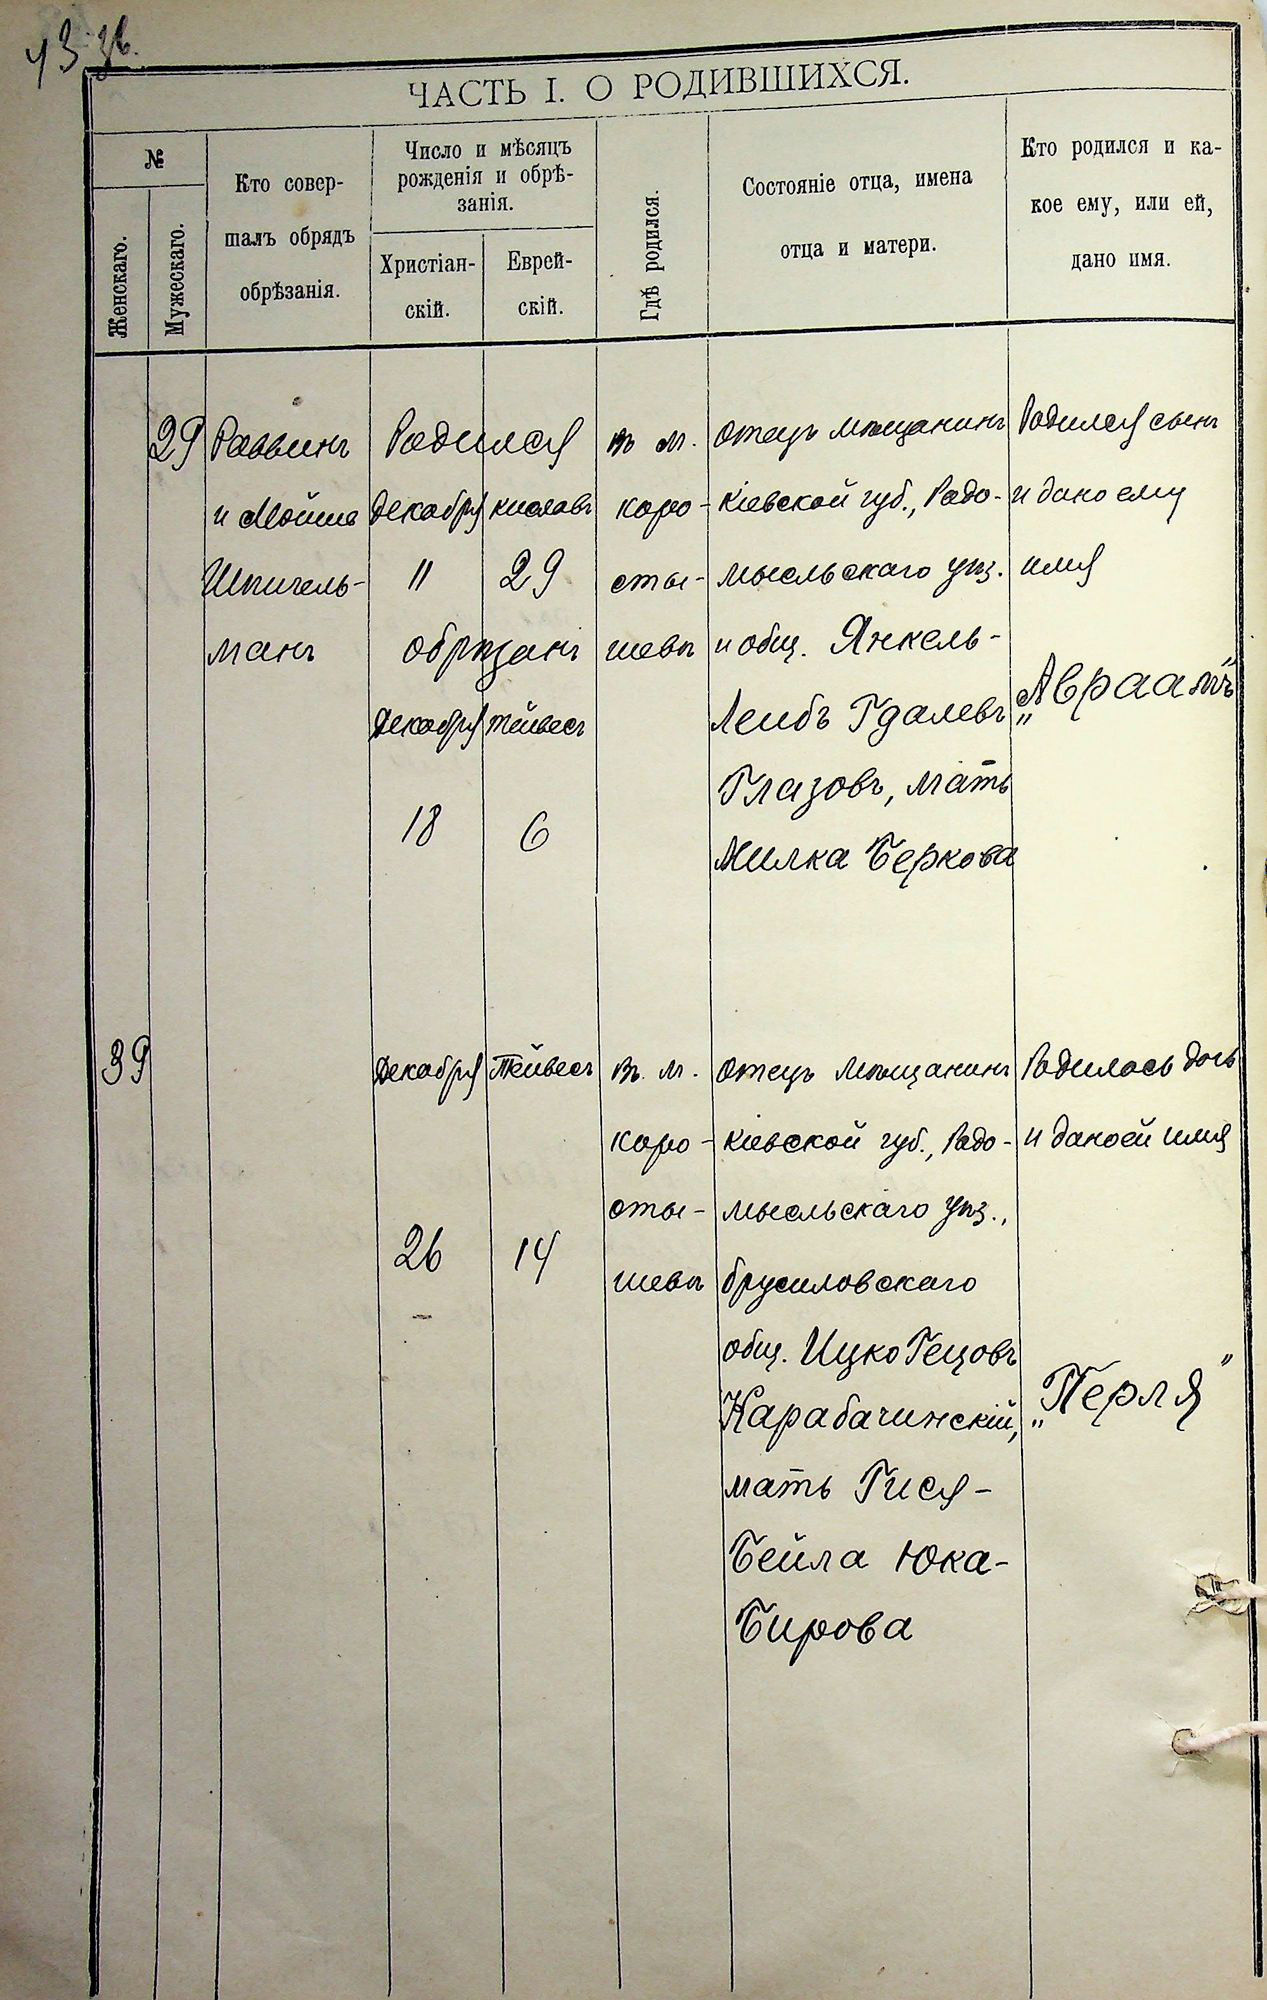 43 зв.
ЧАСТЬ I. О РОДИВШИХСЯ.
№
Женскаго.
Мужескаго.
Кто совер-
шалъ обрядъ
обрѣзанія.
Число и мѣсяцъ
рожденія и обрѣ-
занія.
Христіан-
скій.
Еврей-
скій.
Гдѣ родился.
Состояніе отца, имена
отца и матери.
Кто родился и ка-
кое ему, или ей,
дано имя.
29
Раввинъ
и Мойше
Шпигель-
манъ
Родился
Декабря Кислевъ
11 29
обрѣзанъ
Декабря Тейвесъ
18 6
въ м.
Коро-
сты-
шевѣ
Отецъ мѣщанинъ
Кіевской губ., Радо-
мысльскаго уѣз.
и общ. Янкель-
Лейбъ Гдалевъ
Глазовъ, мать
Милка Беркова
Родился сынъ
и дано ему
имя
„Авраамъ"
39
Декабря Тейвесъ
26 14
въ м.
Коро-
сты-
шевѣ
Отецъ мѣщанинъ
Кіевской губ., Радо-
мысльскаго уѣз.,
брусиловскаго
общ. Ицко Гецовъ
Карабачинскій,
мать Гися-
Бейла Юка-
Бирова
Родилась дочь
и дано ей имя
„Перля"